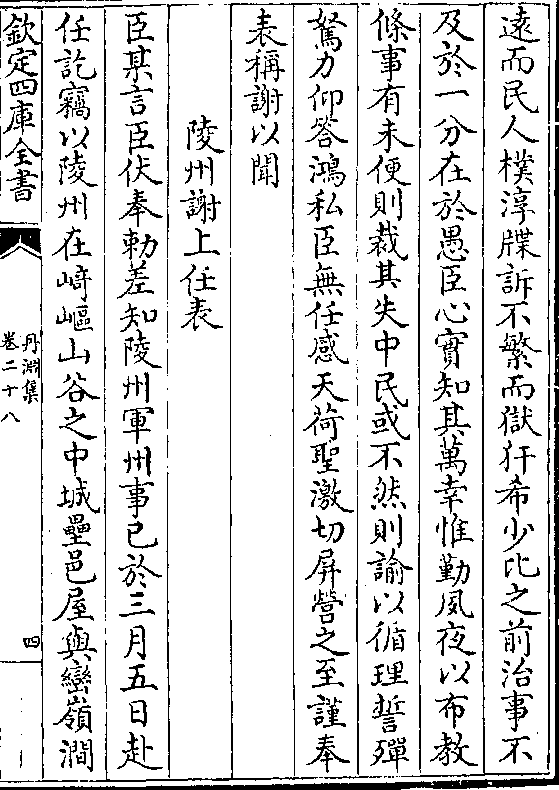 遠而民人樸淳牒訴不繁而獄犴希少比之前治事不
及於一分在於愚臣心實知其萬幸惟勤夙夜以布教
條事有未便則裁其失中民或不然則諭以循理誓殫
駑力仰答鴻私臣無任感天荷聖激切屏營之至謹奉
表稱謝以聞
陵州謝上任表
臣某言臣伏奉勅差知陵州軍州事已於三月五日赴
任訖竊以陵州在﨑嶇山谷之中城壘邑屋與巒嶺澗
欽定四庫全書
丹淵集
卷二十八
四